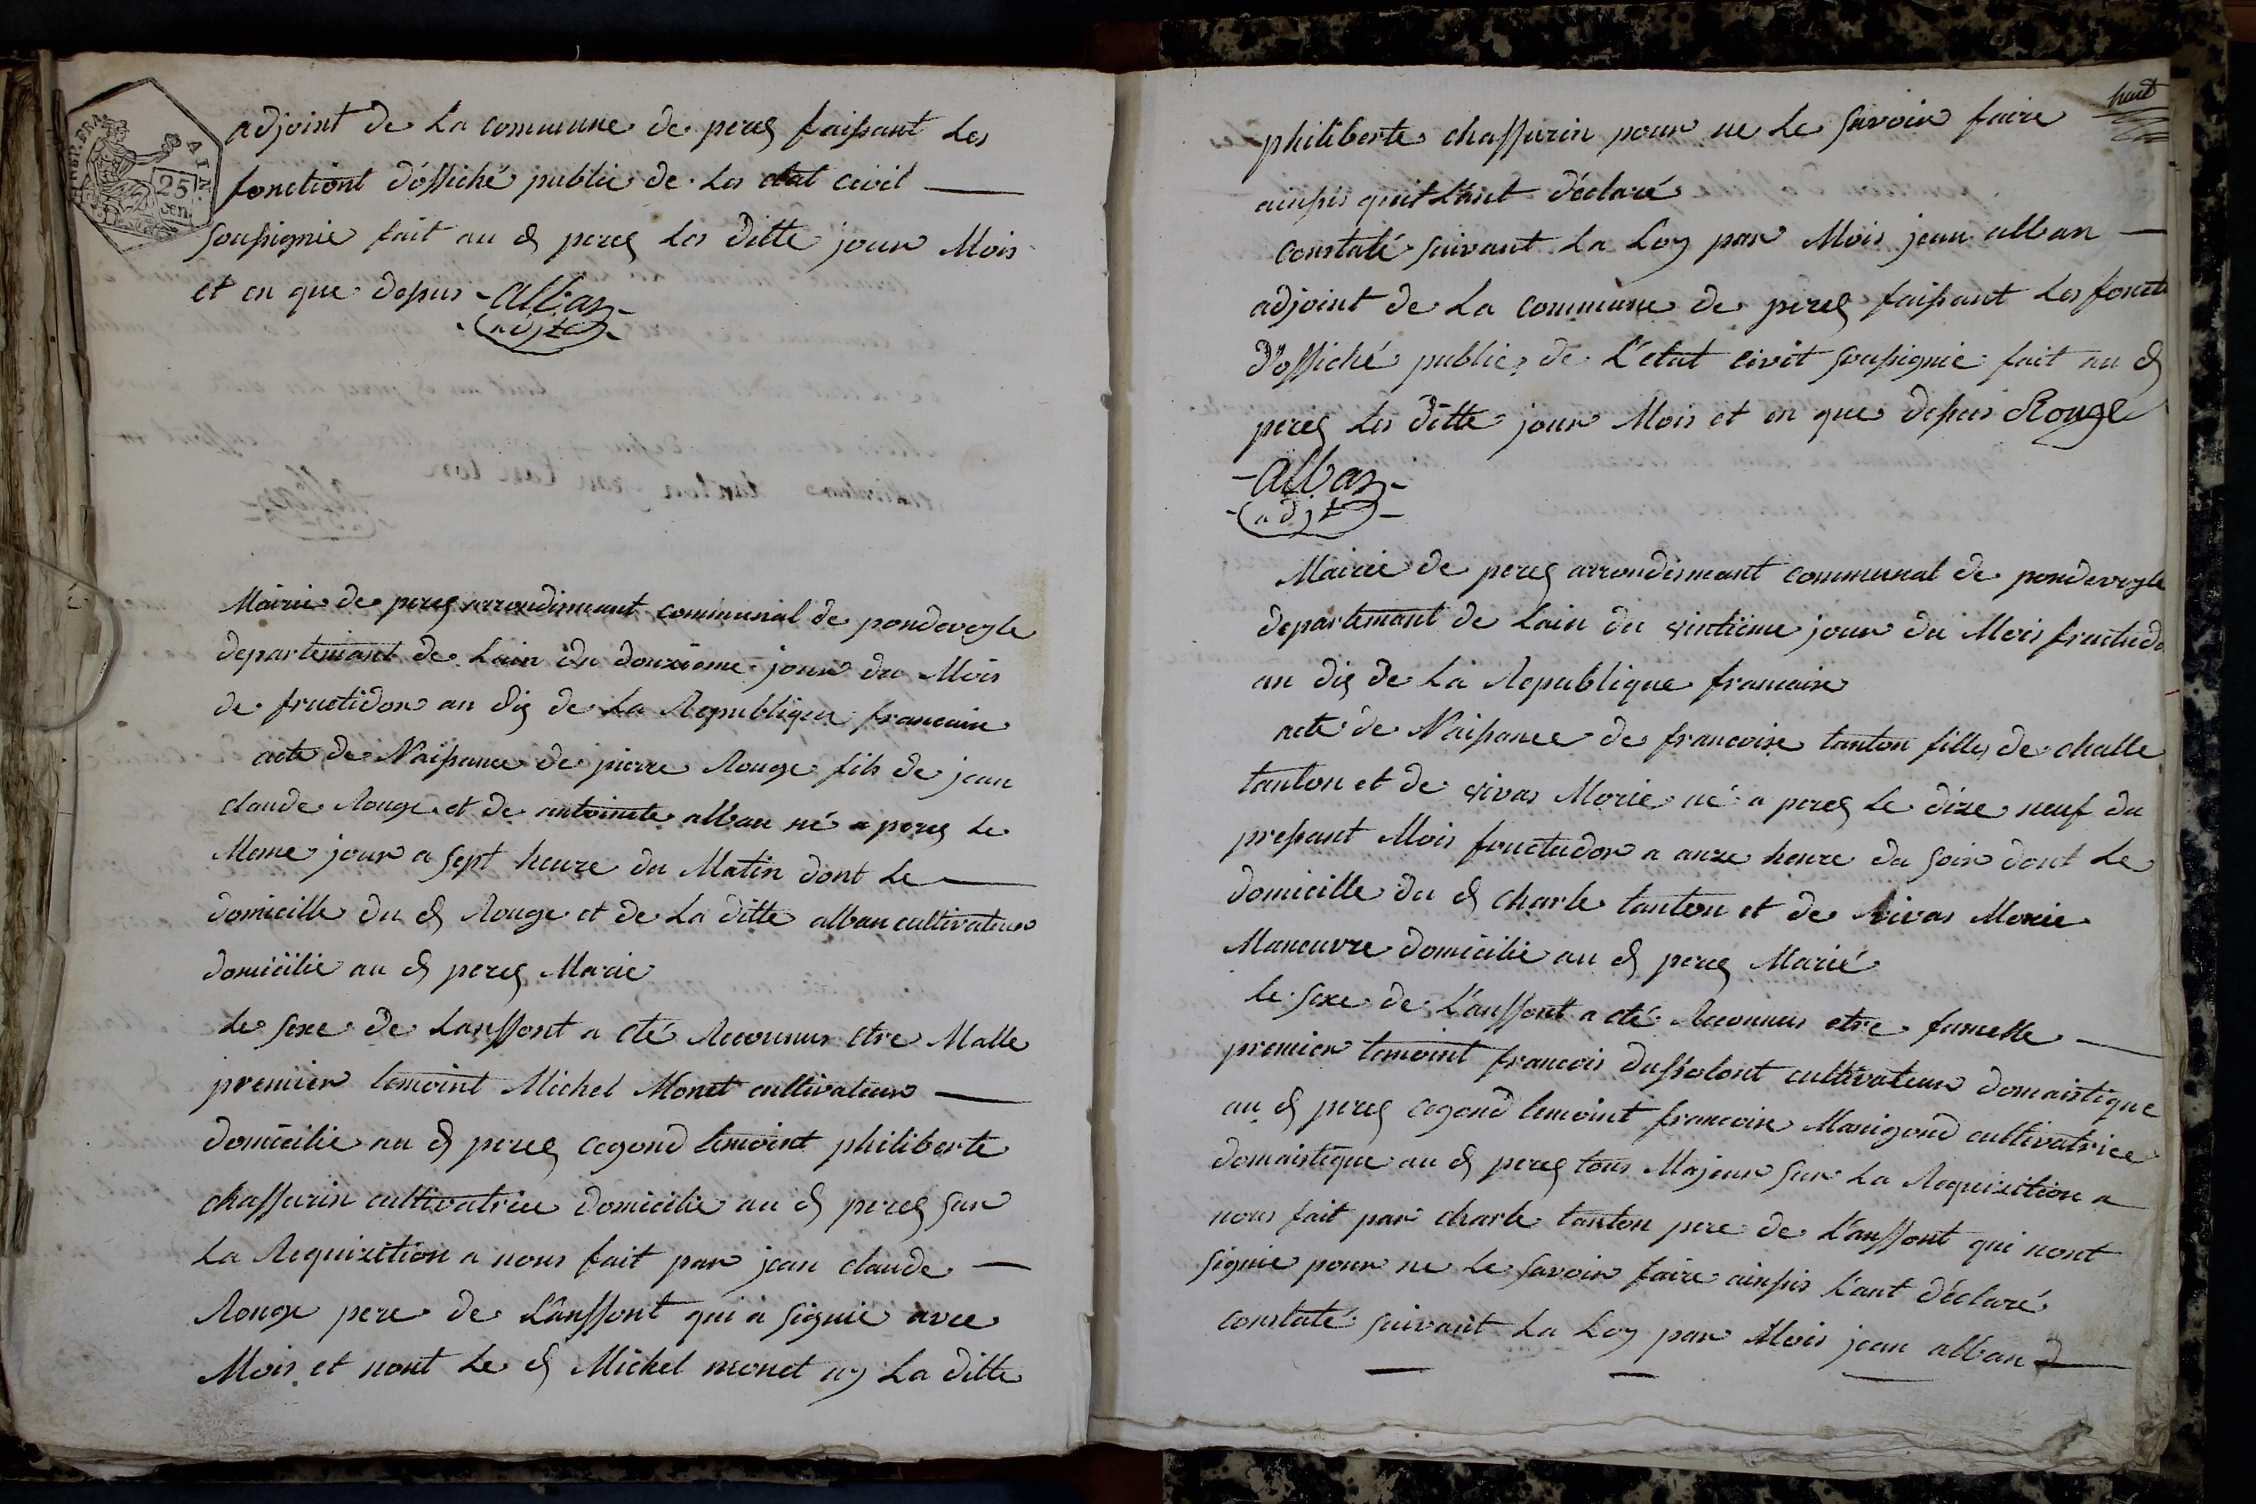 AIN.
25
cen.
adjoint de La commune de perex faissant Les
fonctiont d'offiché public de Les etat civil
soussignie fait au d perex Les ditte jour Mois
et en que desus alban
adjt
Mairie de perex arrondismeant communial de pondeveyle
departemant de Lain du douxieme jour du Mois
de fructidor an dix de La Republique francaire
acte de Naissance de pierre Rouge fils de jean
claude Rouge et de antoinete alban né a perex Le
Meme jour a sept heure du Matin dont Le
domicille du d Rouge et de La ditte alban cultivateur
domicilie au d perex Marie
Le sexe de Lanffont a eté Reconnus etre Malle
premier temoint Michel Monet cultivateur
domicilie au d perex cegond temoint philiberte
chaffurin cultivatrice domicilie au d perex sur
La Requixition a nous fait par jean claude
Rouge pere de L'anffont qui a signie avec
Mois et nont Le d Michel monet ny La ditte
huit
philiberte chaffurin pour ne Le savoir faire
ainssis quit L'ant déclaré
constaté suivant La Loy par Mois jean alban
adjoint de La commune de perex faissant Les fonct
d'offiché public de L'etat civit soussignie fait au d
perex Les ditte jour Mois et en que desus Rouge
alban
adjt
Mairie de perex arrondismeant communal de pondeveyle
departemant de Lain du vintiéme jour du Mois fructudo
an dix de La Republique francaire
acte de Naissance de francoise tanton filles de challe
tanton et de vivas Morie né a perex Le dixe neuf du
pressant Mois fructudor a anze heure du soir dont Le
domicille du d charle tanton et de vivas Morie
Maneuvre domicilie au d perex Marié
le sexe de L'anffont a eté Reconnus etre fumelle
premier temoint francois dussolont cultivateur domaistique
au d perex cegond temoint francoise Manigond cultivatrice
domaistique au d perex tous Majeur sur La Requixition a
nous fait par charle tanton pere de L'anffont qui nont
signie pour ne Le savoir faire ainssis L'ant déclaré
constaté suivant La Loy par Mois jean alban